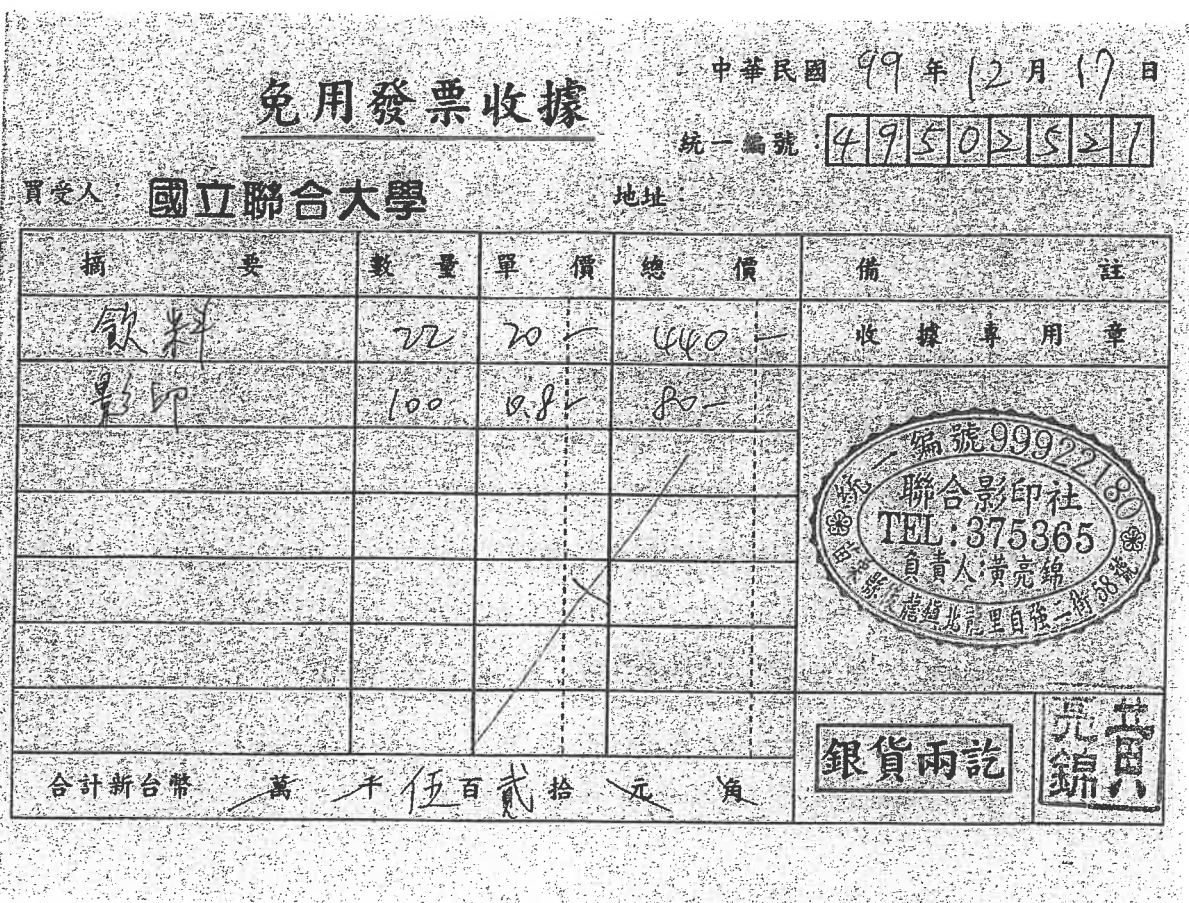 免用發票收據
中華民國 99 年 12 月 17 日
統一編號：49502521
買受人：國立聯合大學 地址：
摘要 數量 單價 總價 備註
飲料 22 20- 440- 收據專用章
影印 100 0.8- 80-
統一編號99922180
聯合影印社
TEL:375365
負責人:黃亮錦
苗栗縣後龍鎮北龍里自強二街58號
合計新台幣 萬 千 伍百貳拾 元 角
銀貨兩訖
黃亮錦